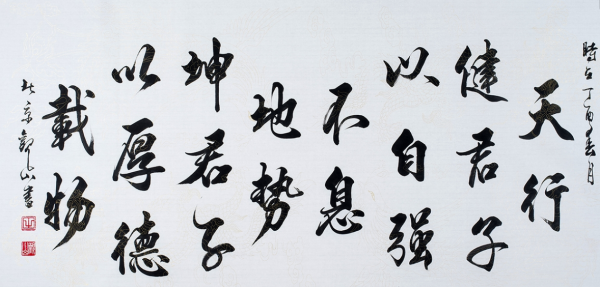 時在丁酉春月
天行
健君子
以自强
不息
地势
坤君子
以厚德
載物
京山書